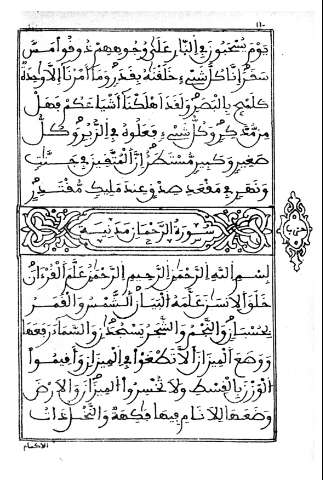 يَوْمَ يُسْحَبُونَ فِي النَّارِ عَلَىٰ وُجُوهِهِمْ ذُوقُوا مَسَّ
سَقَرَ إِنَّا كُلَّ شَيْءٍ خَلَقْنَٰهُ بِقَدَرٍ وَمَا أَمْرُنَا إِلَّا وَٰحِدَةٌ
كَلَمْحٍ بِالْبَصَرِ وَلَقَدْ أَهْلَكْنَا أَشْيَاعَكُمْ فَهَلْ
مِن مُّدَّكِرٍ وَكُلُّ شَيْءٍ فَعَلُوهُ فِي الزُّبُرِ وَكُلُّ
صَغِيرٍ وَكَبِيرٍ مُّسْتَطَرٌ إِنَّ الْمُتَّقِينَ فِي جَنَّٰتٍ
وَنَهَرٍ فِي مَقْعَدِ صِدْقٍ عِندَ مَلِيكٍ مُّقْتَدِرٍ
سُورَةُ الرَّحْمَانِ مَدَنِيَّة
بِسْمِ اللَّهِ الرَّحْمَٰنِ الرَّحِيمِ الرَّحْمَٰنُ عَلَّمَ الْقُرْءَانَ
خَلَقَ الْإِنسَٰنَ عَلَّمَهُ الْبَيَانَ الشَّمْسُ وَالْقَمَرُ
بِحُسْبَانٍ وَالنَّجْمُ وَالشَّجَرُ يَسْجُدَٰنِ وَالسَّمَاءَ رَفَعَهَا
وَوَضَعَ الْمِيزَانَ أَلَّا تَطْغَوْا فِي الْمِيزَانِ وَأَقِيمُوا
الْوَزْنَ بِالْقِسْطِ وَلَا تُخْسِرُوا الْمِيزَانَ وَالْأَرْضَ
وَضَعَهَا لِلْأَنَامِ فِيهَا فَٰكِهَةٌ وَالنَّخْلُ ذَاتُ
الاكمام